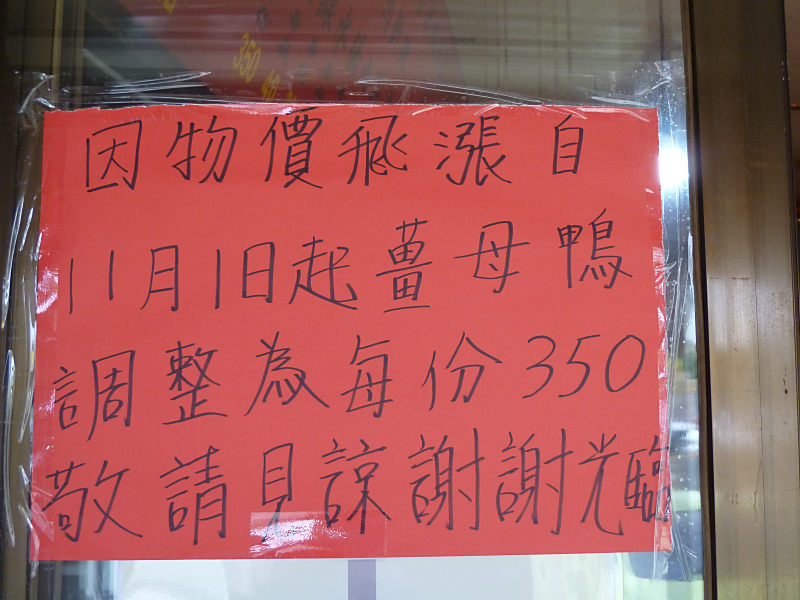 因物價飛漲自
11月1日起薑母鴨
調整為每份350
敬請見諒謝謝光臨
350